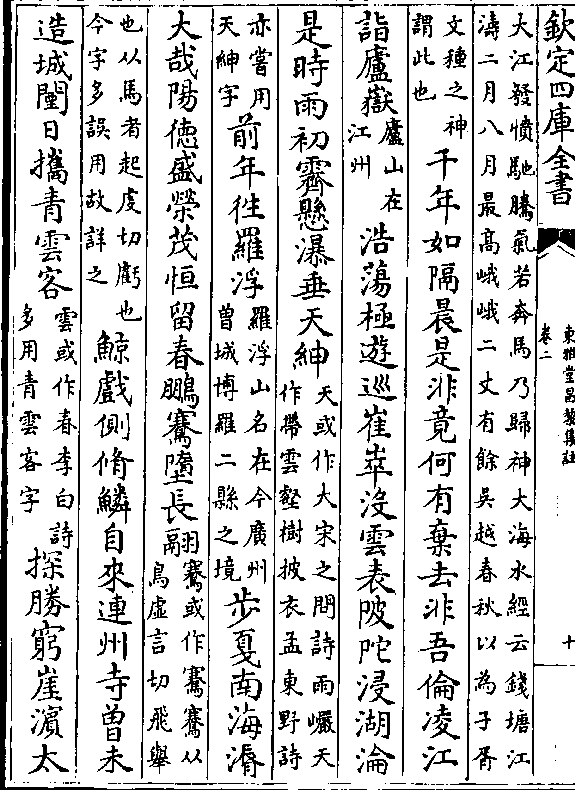 欽定四庫全書
東雅堂昌黎集註
卷二
十
大江發憤馳騰氣若奔馬乃歸神大海水經云錢塘江
濤二月八月最高峨峨二丈有餘吳越春秋以為子胥
文種之神謂此也千年如隔晨是非竟何有棄去非吾倫凌江
詣廬嶽廬山在江州浩蕩極遊巡崔崒沒雲表陂陀浸湖淪
是時雨初霽懸瀑垂天紳天或作大宋之問詩雨巖天作帶雲壑樹披衣孟東野詩
亦嘗用天紳字前年往羅浮羅浮山名在今廣州曾城博羅二縣之境步戛南海漘
大哉陽德盛榮茂恒留春鵬鶱墮長翮鶱或作騫鶱从鳥虛言切飛舉
也从馬者起虔切虧也今字多誤用故詳之鯨戲側脩鱗自來連州寺曾未
造城闉日攜青雲客雲或作春李白詩多用青雲客字探勝窮崖濱太